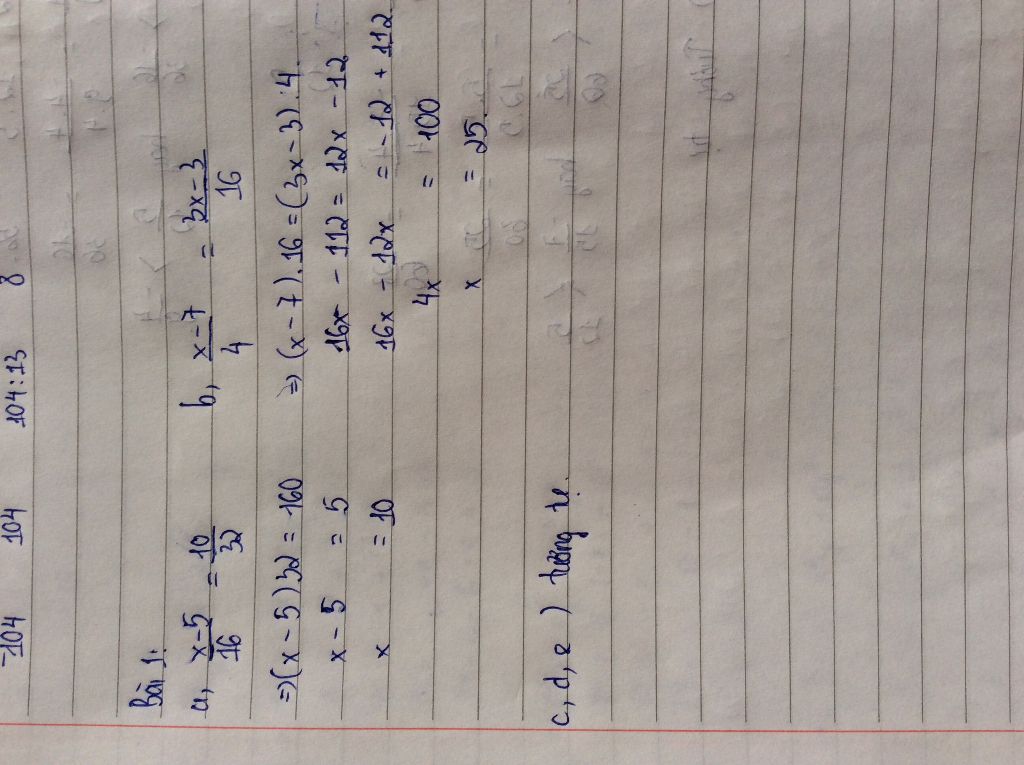 -104 104 104:13 8
Bài 1:
a, x-5/16 = 10/32 b, x-7/4 = 3x-3/16
=> (x-5)32 = 160 => (x-7).16 = (3x-3).4.
x-5 = 5 16x - 112 = 12x - 12
x = 10 16x - 12x = -12 + 112
4x = 100
x = 25.
c, d, e ) tương tự.